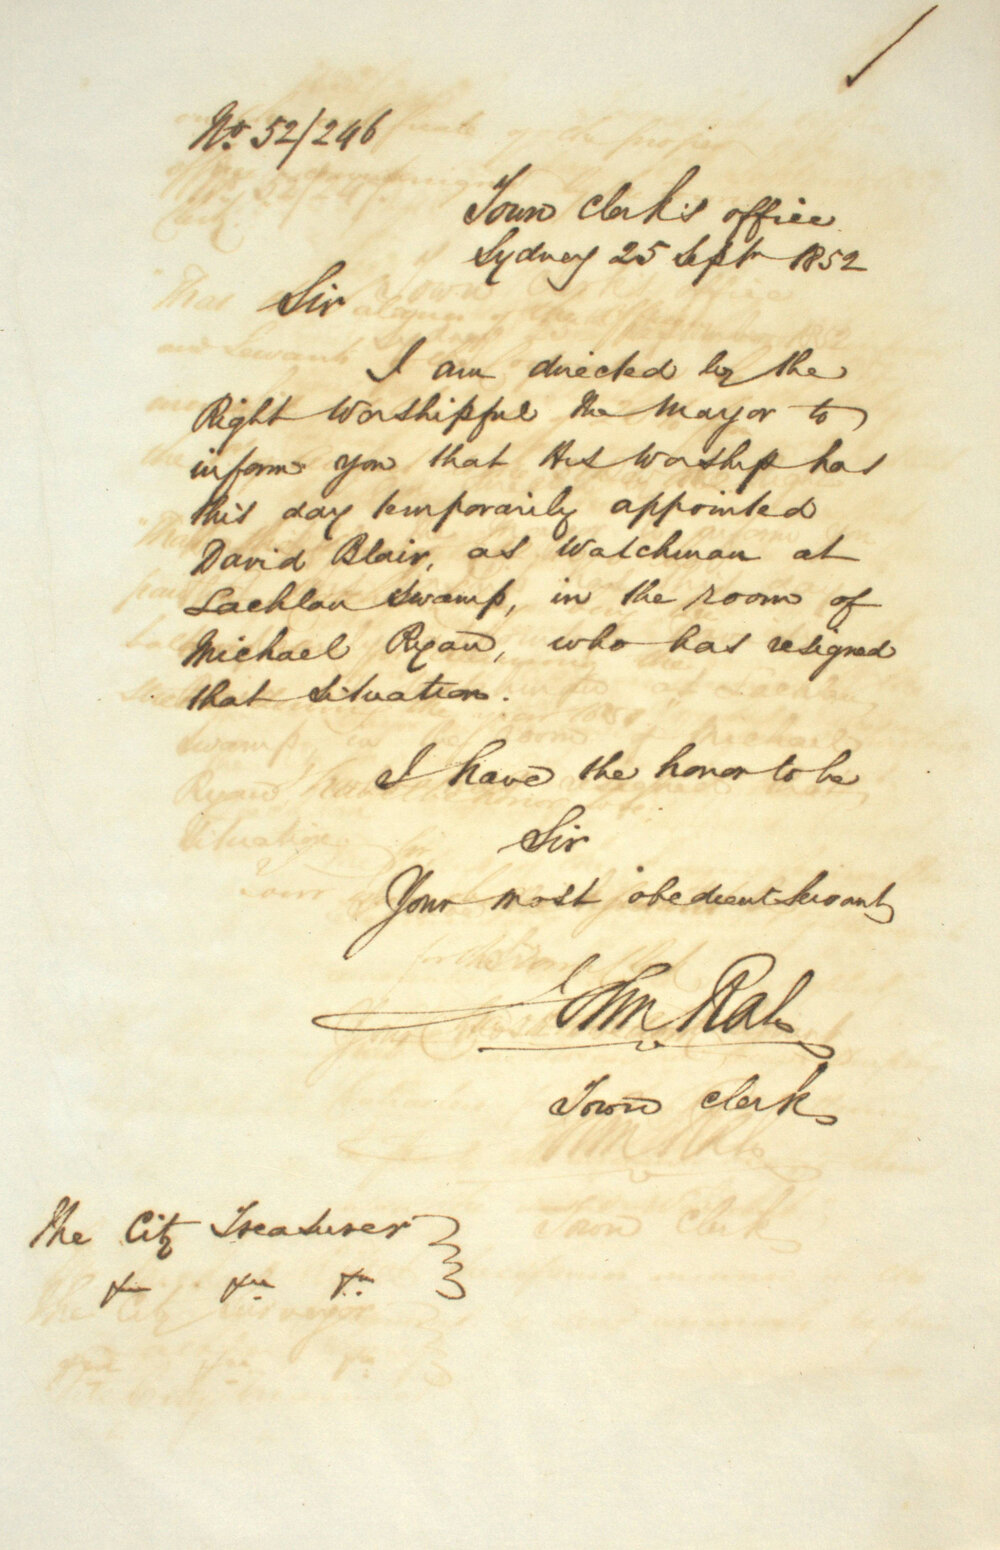 No. 52/246
Town Clerk's office
Sydney 25 Sept 1852
Sir
I am directed by the
Right Worshipful the Mayor to
inform you that His Worship has
this day temporarily appointed
David Blair, as Watchman at
Lachlan Swamp, in the room of
Michael Ryan, who has resigned
that situation.
I have the honor to be
Sir
Your most obedient Servant
John Rae
Town Clerk
The City Treasurer